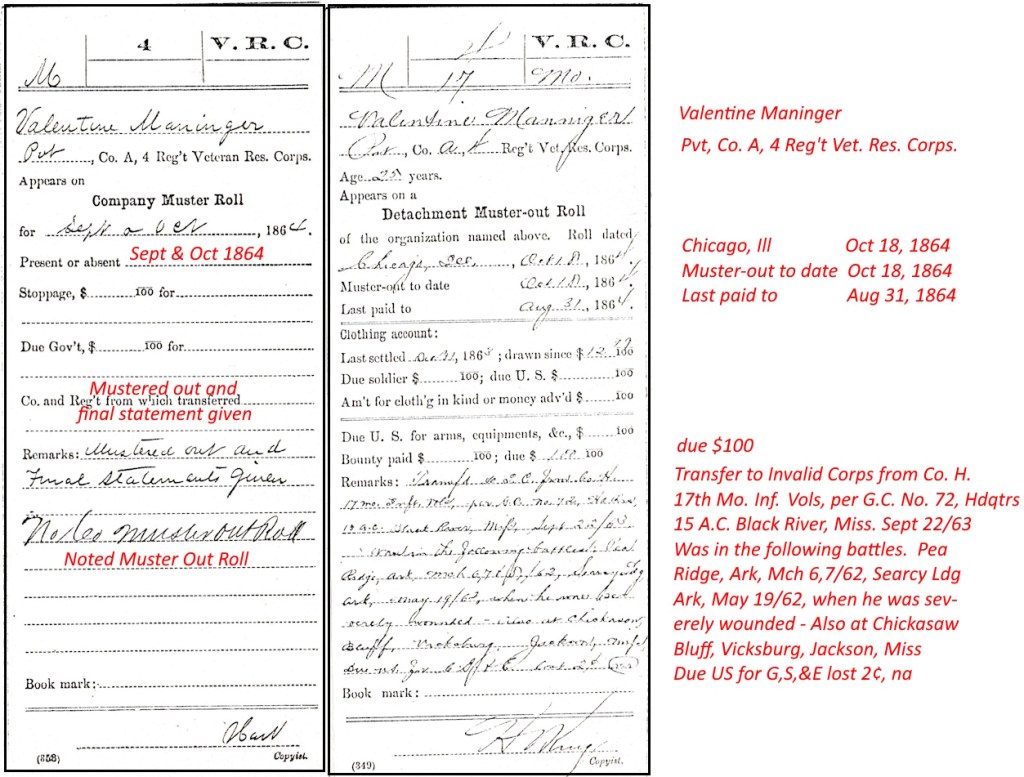 4 V. R. C.
M
Valentine Maninger
Pvt, Co. A, 4 Reg't Veteran Res. Corps.
Appears on
Company Muster Roll
for Sept & Oct, 1864.
Present or absent Sept & Oct 1864
Stoppage, $ 100 for
Due Gov't, $ 100 for
Mustered out and
Co. and Reg't from which transferred
final statement given
Remarks: Mustered out and
Final Statements given
No Co muster out Roll
Noted Muster Out Roll
Book mark:
Hart
(358) Copyist.
4 V. R. C.
M 17 Mo.
Valentine Manniger
Pvt., Co. A, 4 Reg't Vet. Res. Corps.
Age 25 years.
Appears on a
Detachment Muster-out Roll
of the organization named above. Roll dated
Chicago, Ill., Oct 18, 1864.
Muster-out to date Oct 18, 1864.
Last paid to Aug 31, 1864.
Clothing account:
Last settled Dec 31, 1863; drawn since $ 100
Due soldier $ 100; due U. S. $ 100
Am't for cloth'g in kind or money adv'd $ 100
Due U. S. for arms, equipments, &c., $ 100
Bounty paid $ 100; due $ 100 100
Remarks: Transfd to I.C. from Co. H.
17 Mo. Inft. Vols., per G.O. No. 72, Hd Qrs,
15 A.C. Black River, Miss, Sept 22/63
Was in the following battles. Pea
Ridge, Ark, Mch 6, 7 & 8, /62, Searcy Ldg
Ark, May 19/62, when he was sev-
erely wounded - Also at Chickasaw
Bluff, Vicksburg, Jackson, Miss
Due U.S. for C & E lost 2
Book mark:
(349) Copyist.
Valentine Maninger
Pvt, Co. A, 4 Reg't Vet. Res. Corps.
Chicago, Ill Oct 18, 1864
Muster-out to date Oct 18, 1864
Last paid to Aug 31, 1864
due $100
Transfer to Invalid Corps from Co. H.
17th Mo. Inf. Vols, per G.C. No. 72, Hdqtrs
15 A.C. Black River, Miss. Sept 22/63
Was in the following battles. Pea
Ridge, Ark, Mch 6,7/62, Searcy Ldg
Ark, May 19/62, when he was sev-
erely wounded - Also at Chickasaw
Bluff, Vicksburg, Jackson, Miss
Due US for G,S,&E lost 2¢, na